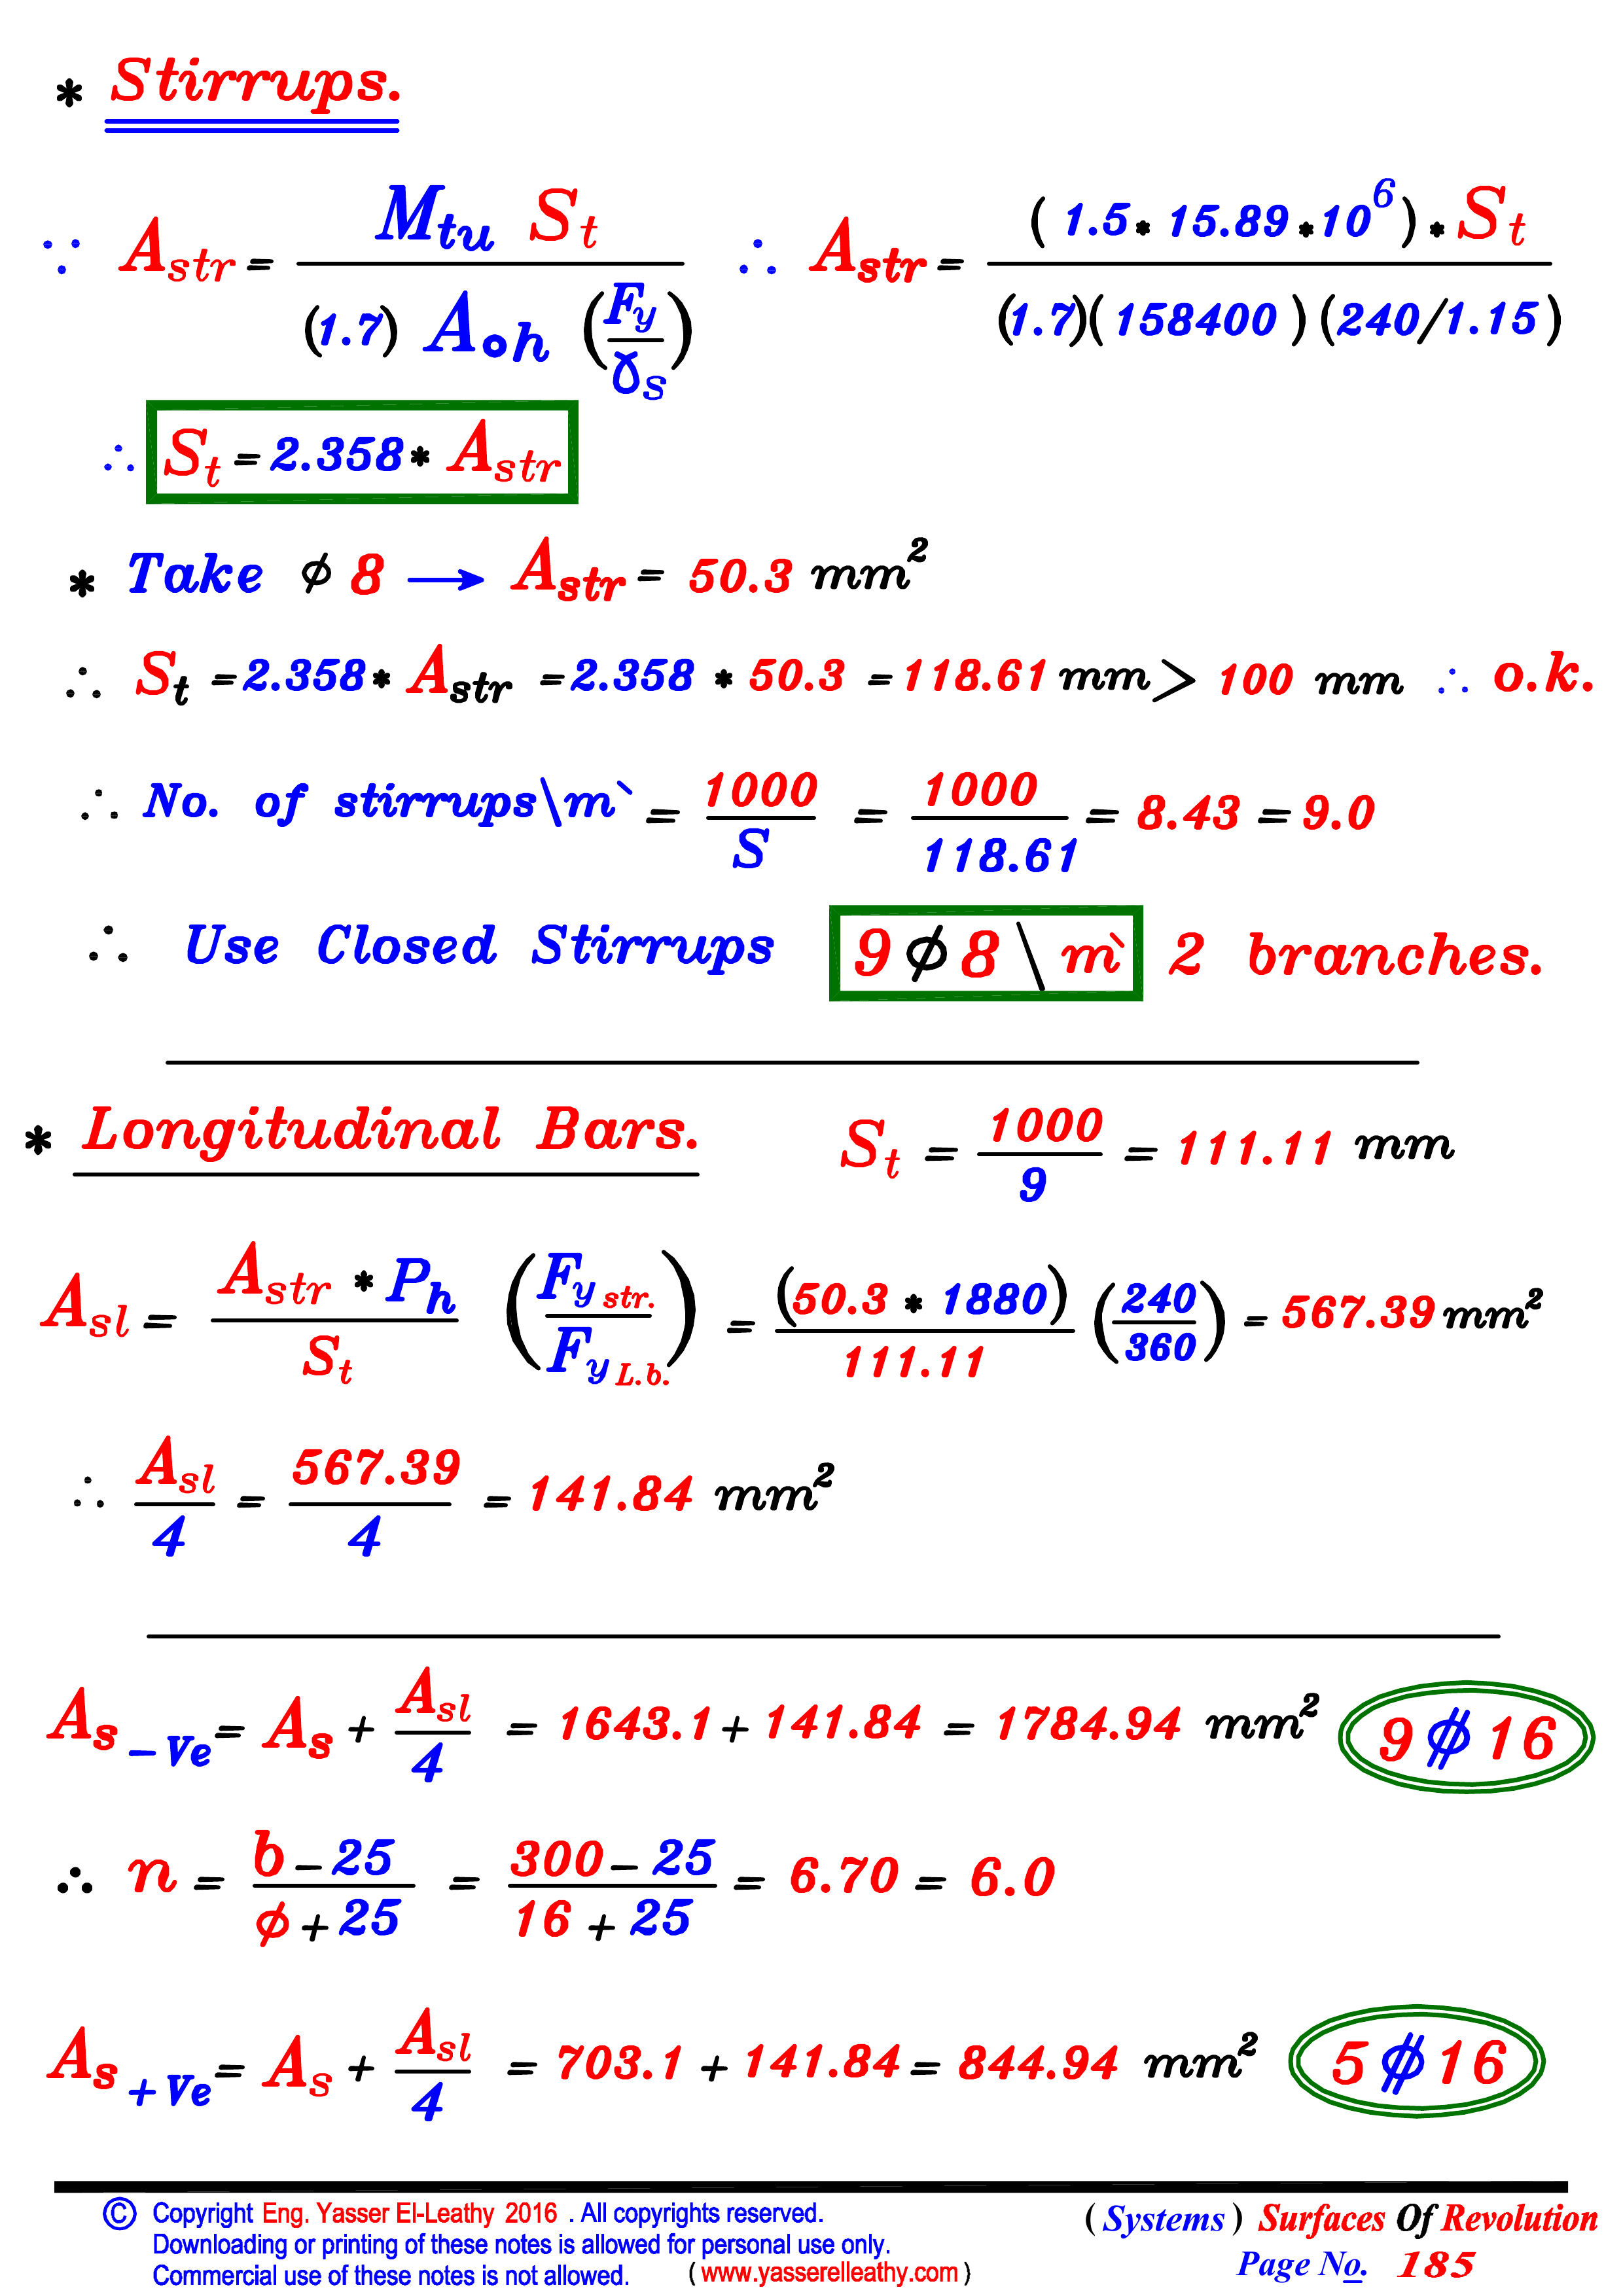 * Stirrups.
∵ A_str = (M_tu S_t) / ((1.7) A_oh (F_y / γ_s)) ∴ A_str = ((1.5 * 15.89 * 10^6) * S_t) / ((1.7)(158400)(240/1.15))
∴ S_t = 2.358 * A_str
* Take ϕ 8 → A_str = 50.3 mm²
∴ S_t = 2.358 * A_str = 2.358 * 50.3 = 118.61 mm > 100 mm ∴ o.k.
∴ No. of stirrups\m` = 1000 / S = 1000 / 118.61 = 8.43 = 9.0
∴ Use Closed Stirrups 9 ϕ 8 \ m` 2 branches.
* Longitudinal Bars. S_t = 1000 / 9 = 111.11 mm
A_sl = (A_str * P_h) / S_t (F_y str. / F_y L.b.) = (50.3 * 1880) / 111.11 (240 / 360) = 567.39 mm²
∴ A_sl / 4 = 567.39 / 4 = 141.84 mm²
A_s -ve = A_s + A_sl / 4 = 1643.1 + 141.84 = 1784.94 mm² 9 ϕ 16
∴ n = (b - 25) / (ϕ + 25) = (300 - 25) / (16 + 25) = 6.70 = 6.0
A_s +ve = A_s + A_sl / 4 = 703.1 + 141.84 = 844.94 mm² 5 ϕ 16
© Copyright Eng. Yasser El-Leathy 2016 . All copyrights reserved.
Downloading or printing of these notes is allowed for personal use only.
Commercial use of these notes is not allowed. ( www.yasserelleathy.com )
( Systems ) Surfaces Of Revolution
Page No. 185